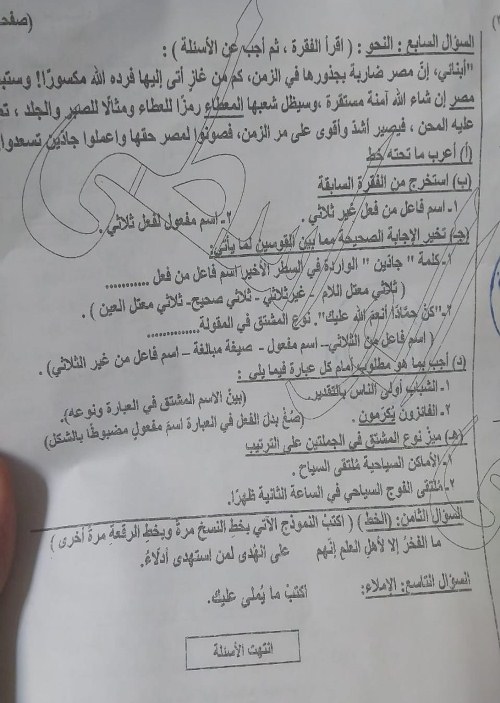 (صفحـ
السؤال السابع : النحو : ( اقرأ الفقرة ، ثم أجب عن الأسئلة ) :
"أبنائي، إنّ مصر ضاربة بجذورها في الزمن، كم من غازٍ أتى إليها فرده الله مكسورًا!! وستبـ
مصر إن شاء الله آمنة مستقرة ،وسيظل شعبها المعطاء رمزًا للعطاء ومثالًا للصبر والجلد ، تمـ
عليه المحن ، فيصير أشدّ وأقوى على مر الزمن، فصونوا لمصر حقها واعملوا جادّين تسعدوا
(أ) أعرب ما تحته خط
(ب) استخرج من الفقرة السابقة
١- اسم فاعل من فعل غير ثلاثي . ٢- اسم مفعول لفعل ثلاثي .
(جـ) تخير الإجابة الصحيحة مما بين القوسين لما يأتي:
١- كلمة " جادّين " الواردة في السطر الأخير اسم فاعل من فعل ...........
( ثلاثي معتل اللام - غير ثلاثي - ثلاثي صحيح- ثلاثي معتل العين ) .
٢-"كنْ حمَّادًا أنعمَ الله عليك". نوع المشتق في المقولة.............
( اسم فاعل من الثلاثي– اسم مفعول - صيغة مبالغة – اسم فاعل من غير الثلاثي) .
(د) أجب بما هو مطلوب أمام كل عبارة فيما يلي :
١- الشباب أولى الناس بالتقدير. (بينْ الاسم المشتق في العبارة ونوعه).
٢- الفائزونَ يُكرّمون . (صُغْ بدلَ الفعل في العبارة اسمَ مفعولٍ مضبوطًا بالشكل)
(هـ) ميزْ نوع المشتق في الجملتين على الترتيب
١- الأماكن السياحية مُلتقى السياح .
٢- مُلتقى الفوج السياحي في الساعة الثانية ظهرًا.
السؤال الثامن: (الخط ) ( اكتبْ النموذج الآتي بخطِ النسخ مرةً وبخطِ الرقعةِ مرةً أخرى )
ما الفخرُ إلا لأهلِ العلم إنّهم على الهُدى لمن استهدى أدلّاءُ.
السؤال التاسع: الإملاء: اكتبْ ما يُملى عليك.
انتهت الأسئلة